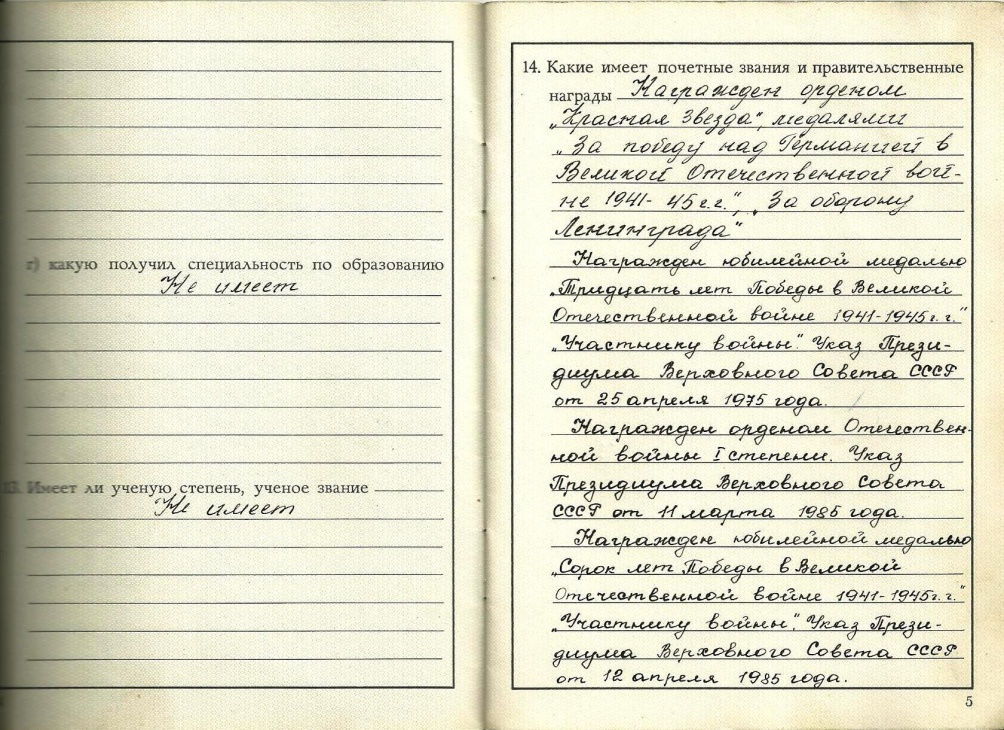 г) какую получил специальность по образованию
Не имеет
13. Имеет ли ученую степень, ученое звание
Не имеет
14. Какие имеет почетные звания и правительственные
награды Награжден орденом
„Красная Звезда“, медалями
„За победу над Германией в
Великой Отечественной вой-
не 1941- 45 г.г.“, „За оборону
Ленинграда“
Награжден юбилейной медалью
„Тридцать лет Победы в Великой
Отечественной войне 1941-1945г.г.“
„Участнику войны“. Указ Прези-
диума Верховного Совета СССР
от 25 апреля 1975 года.
Награжден орденом Отечествен-
ной войны I степени. Указ
Президиума Верховного Совета
СССР от 11 марта 1985 года.
Награжден юбилейной медалью
„Сорок лет Победы в Великой
Отечественной войне 1941-1945г.г.“
„Участнику войны“. Указ Прези-
диума Верховного Совета СССР
от 12 апреля 1985 года.
5